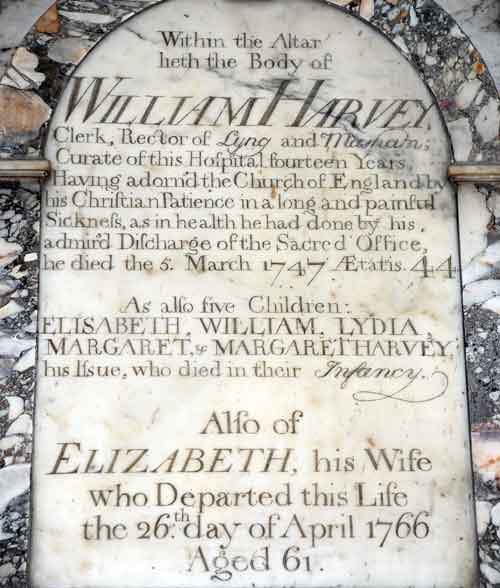 Within the Altar
lieth the Body of
WILLIAM HARVEY
Clerk, Rector of Lyng and
Curate of this Hospital fourteen Years,
Having adorn'd the Church of England by
his Chriſtian Patience in a long and painful
Sickneſs, as in health he had done by his,
admir'd Diſcharge of the Sacred Office,
he died the 5. March 1747 Ætatis. 44
As alſo five Children:
ELISABETH, WILLIAM, LYDIA,
MARGARET, & MARGARET HARVEY,
his Iſsue, who died in their Infancy.
Alſo of
ELIZABETH, his Wife
who Departed this Life
the 26.th day of April 1766
Aged 61.